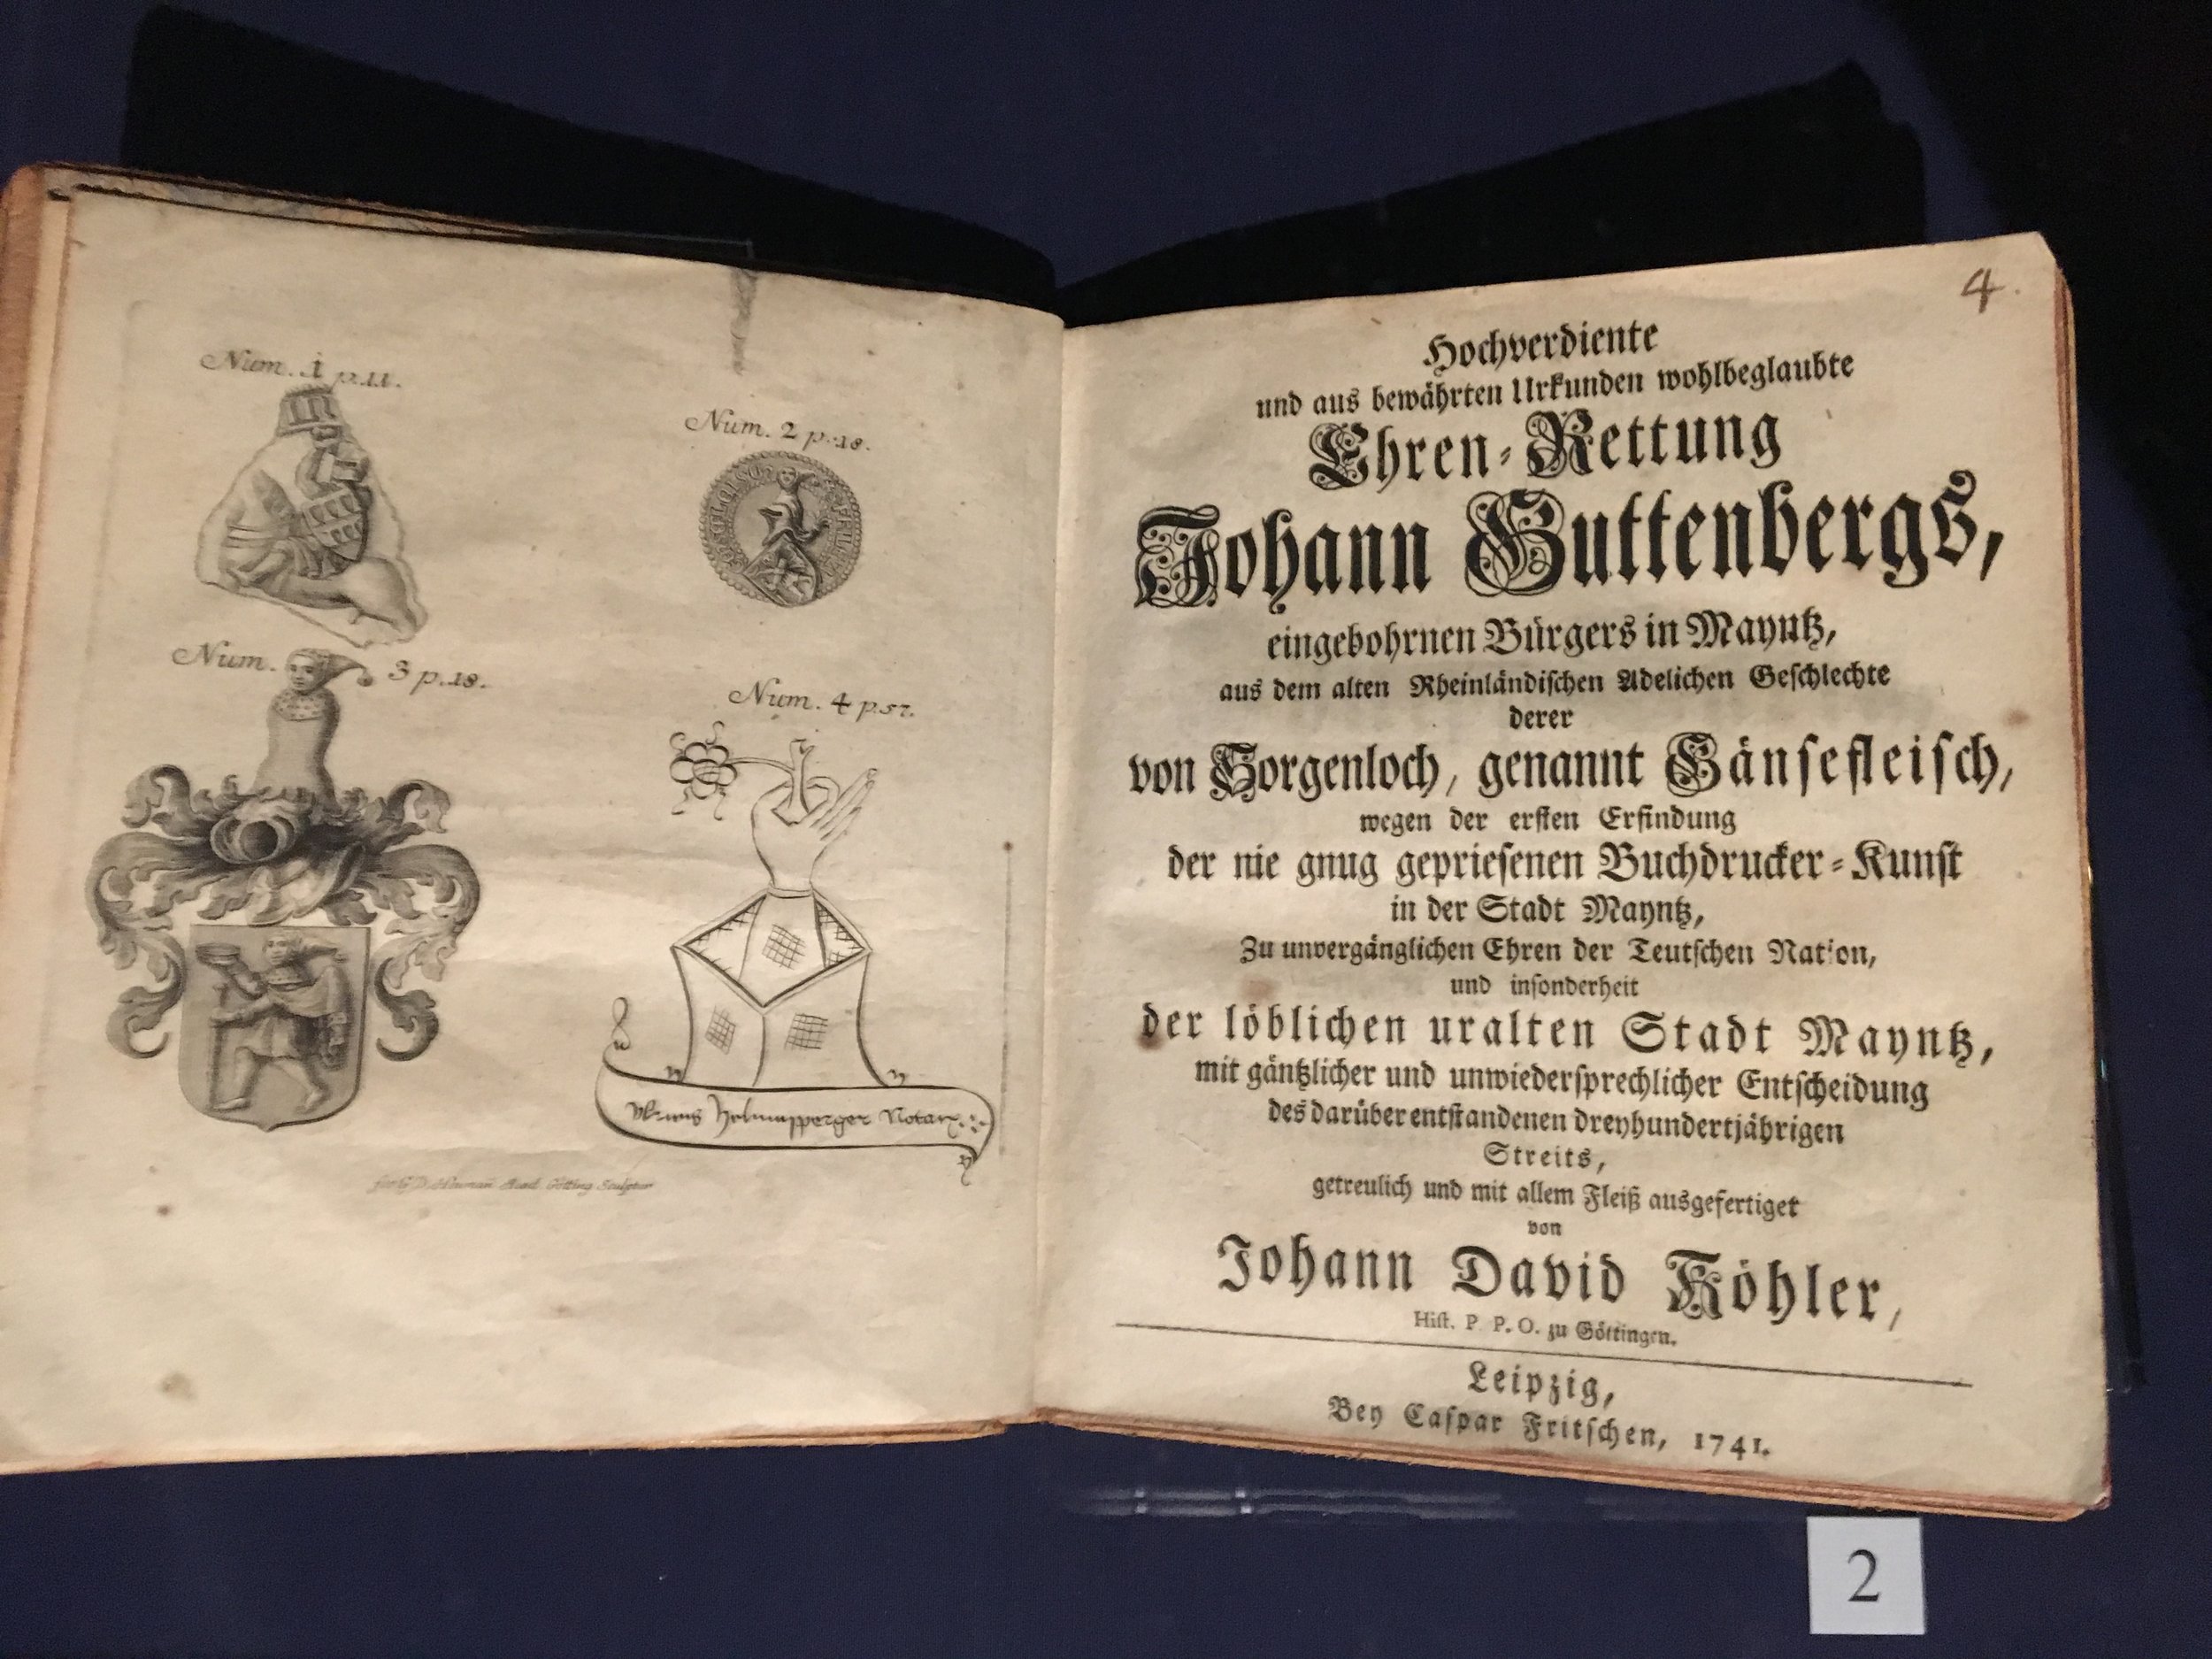 Num. 1 p.11.
Num. 2 p.18.
Num. 3 p.18.
Num. 4 p.57.
Notari
Sculptor
4.
Hochverdiente
und aus bewährten Urkunden wohlbeglaubte
Ehren-Rettung
Johann Guttenbergs,
eingebohrnen Bürgers in Mayntz,
aus dem alten Rheinländischen Adelichen Geschlechte
derer
von Sorgenloch, genannt Gänsefleisch,
wegen der ersten Erfindung
der nie gnug gepriesenen Buchdrucker-Kunst
in der Stadt Mayntz,
Zu unvergänglichen Ehren der Teutschen Nation,
und insonderheit
der löblichen uralten Stadt Mayntz,
mit gäntzlicher und unwiedersprechlicher Entscheidung
des darüber entstandenen dreyhundertjährigen
Streits,
getreulich und mit allem Fleiß ausgefertiget
von
Johann David Köhler,
Hist. P. P. O. zu Göttingen.
Leipzig,
Bey Caspar Fritschen, 1741.
2